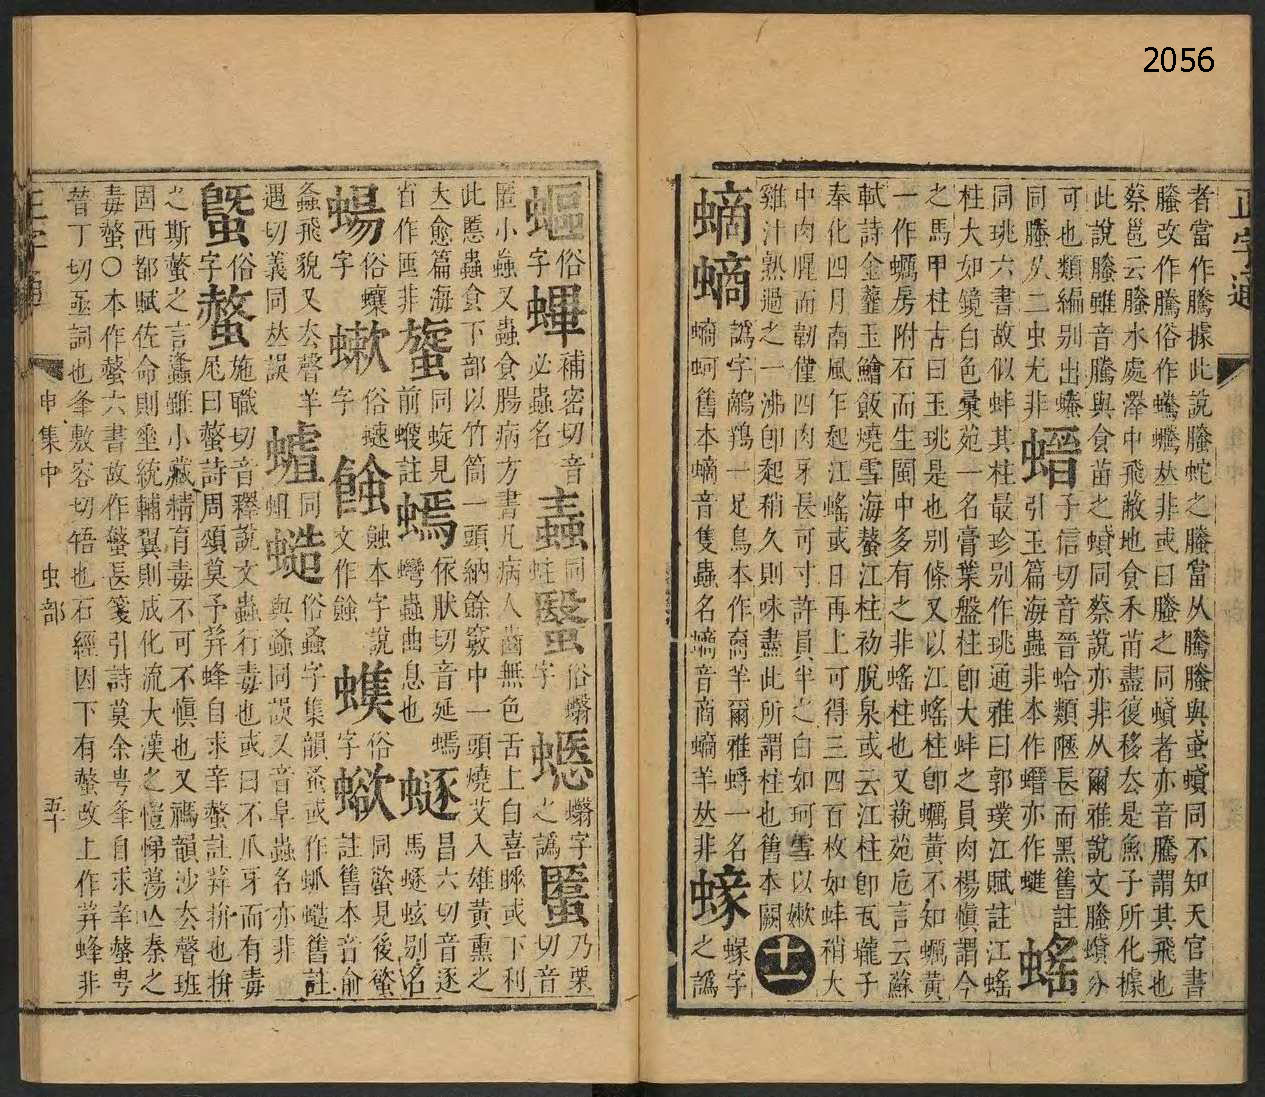 2056
正字通
者當作騰據此說螣蛇之螣當从騰螣與䖵蟘同不知天官書
螣改作騰俗作䲍䲍𠀤非或曰螣之同蟘者亦音騰謂其飛也
蔡邕云螣水處澤中飛蔽地食禾苗盡復移去是魚子所化據
此說螣雖音騰與食苗之蟘同蔡說亦非从爾雅說文螣蟘分
可也類編別出
同螣从二虫尤非
螼
子信切音晉蛤類陿長而黑舊註
引玉篇海蟲非本作蜃亦作蜓
䌛
同珧六書故似蚌其柱最珍別作珧通雅曰郭璞江賦註江蜯
柱大如鏡白色彙苑一名膏葉盤柱卽大蚌之員肉楊愼謂今
之馬甲柱古曰玉珧是也別條又以江瑤柱卽蠣黃不知蠣黃
一作蠣房附石而生閩中多有之非瑤柱也又埶苑卮言云蘇
軾詩金虀玉鱠飯燒雪海螯江柱初脫泉或云江柱卽瓦壠子
奉化四月南風乍起江瑤或日再上可得三四百枚如蚌稍大
中肉腥而韌僅四肉牙長可寸許員半之白如珂雪以嫩
雞汁熟過之一沸卽起稍久則味盡此所謂柱也舊本闕
十一
螪
螪
譌字鷸鸐一足鳥本作𠹧羊爾雅蜉一名
螪蚵舊本螪音隻蟲名螪音商螪羊𠀤非
蟓
蝝字
之譌
蝹
俗字
蟬
補密切音
必蟲名
蠚
同蛀
蠥
俗蠮字
蟋
蠮字之譌
䘌
乃栗切音
匿小蟲又蟲食腸病方書凡病人齒無色舌上白喜睡或下利
此䘌蟲食下部以竹筒一頭納餘竅中一頭燒艾入雄黃熏之
大愈篇海
省作匶非
䗠
同蜁見
前蝬註
蟡
依狀切音延蟡
彎蟲曲息也
蝫
昌六切音逐
馬蝫蚿別名
蝪
俗蠰字
蟟
俗蟟字
䗖
蝕本字說
文作餘
蟥
俗字
蟩
同蟨見後蟨
註舊本音俞
螽飛貌又去聲羊
遇切義同𠀤誤
䗪
同蛆
蟔
俗螽字集韻螽或作䖣蟔舊註
與螽同誤又音阜蟲名亦非
蟨
俗字
螫
施職切音釋說文蟲行毒也或曰不爪牙而有毒
尾曰螫詩周頌莫予荓蜂自求辛螫註荓拚也拚
之斯螫之言蠭雖小藏精育毒不可不愼也又禡韻沙去聲班
固西都賦佐命則垂統輔翼則成化流大漢之愷悌蕩亾秦之
毒螫○本作螫六書故作蠚長箋引詩莫余甹夆自求辛螫甹
普丁切亟詞也夆敷容切啎也石經因下有螫改上作荓蜂非
正字通
申集中
虫部
五十